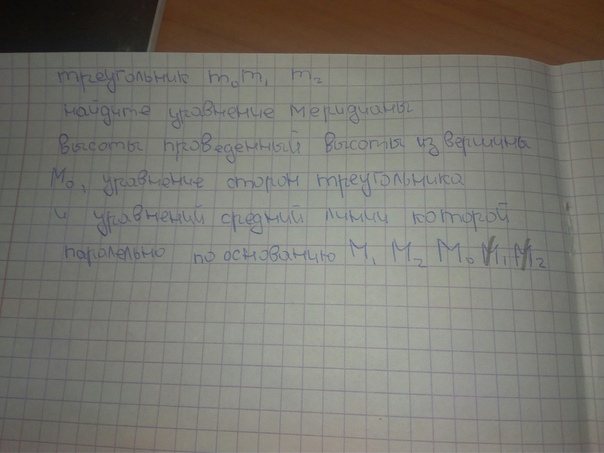 треугольник m₀m₁ m₂
найдите уравнение меридианы
высоты проведенный высоты из вершины
M₀, уравнение сторон треугольника
и уравнений средний линии которой
паралельно по основанию M₁ M₂ M₀ M₁ M₂